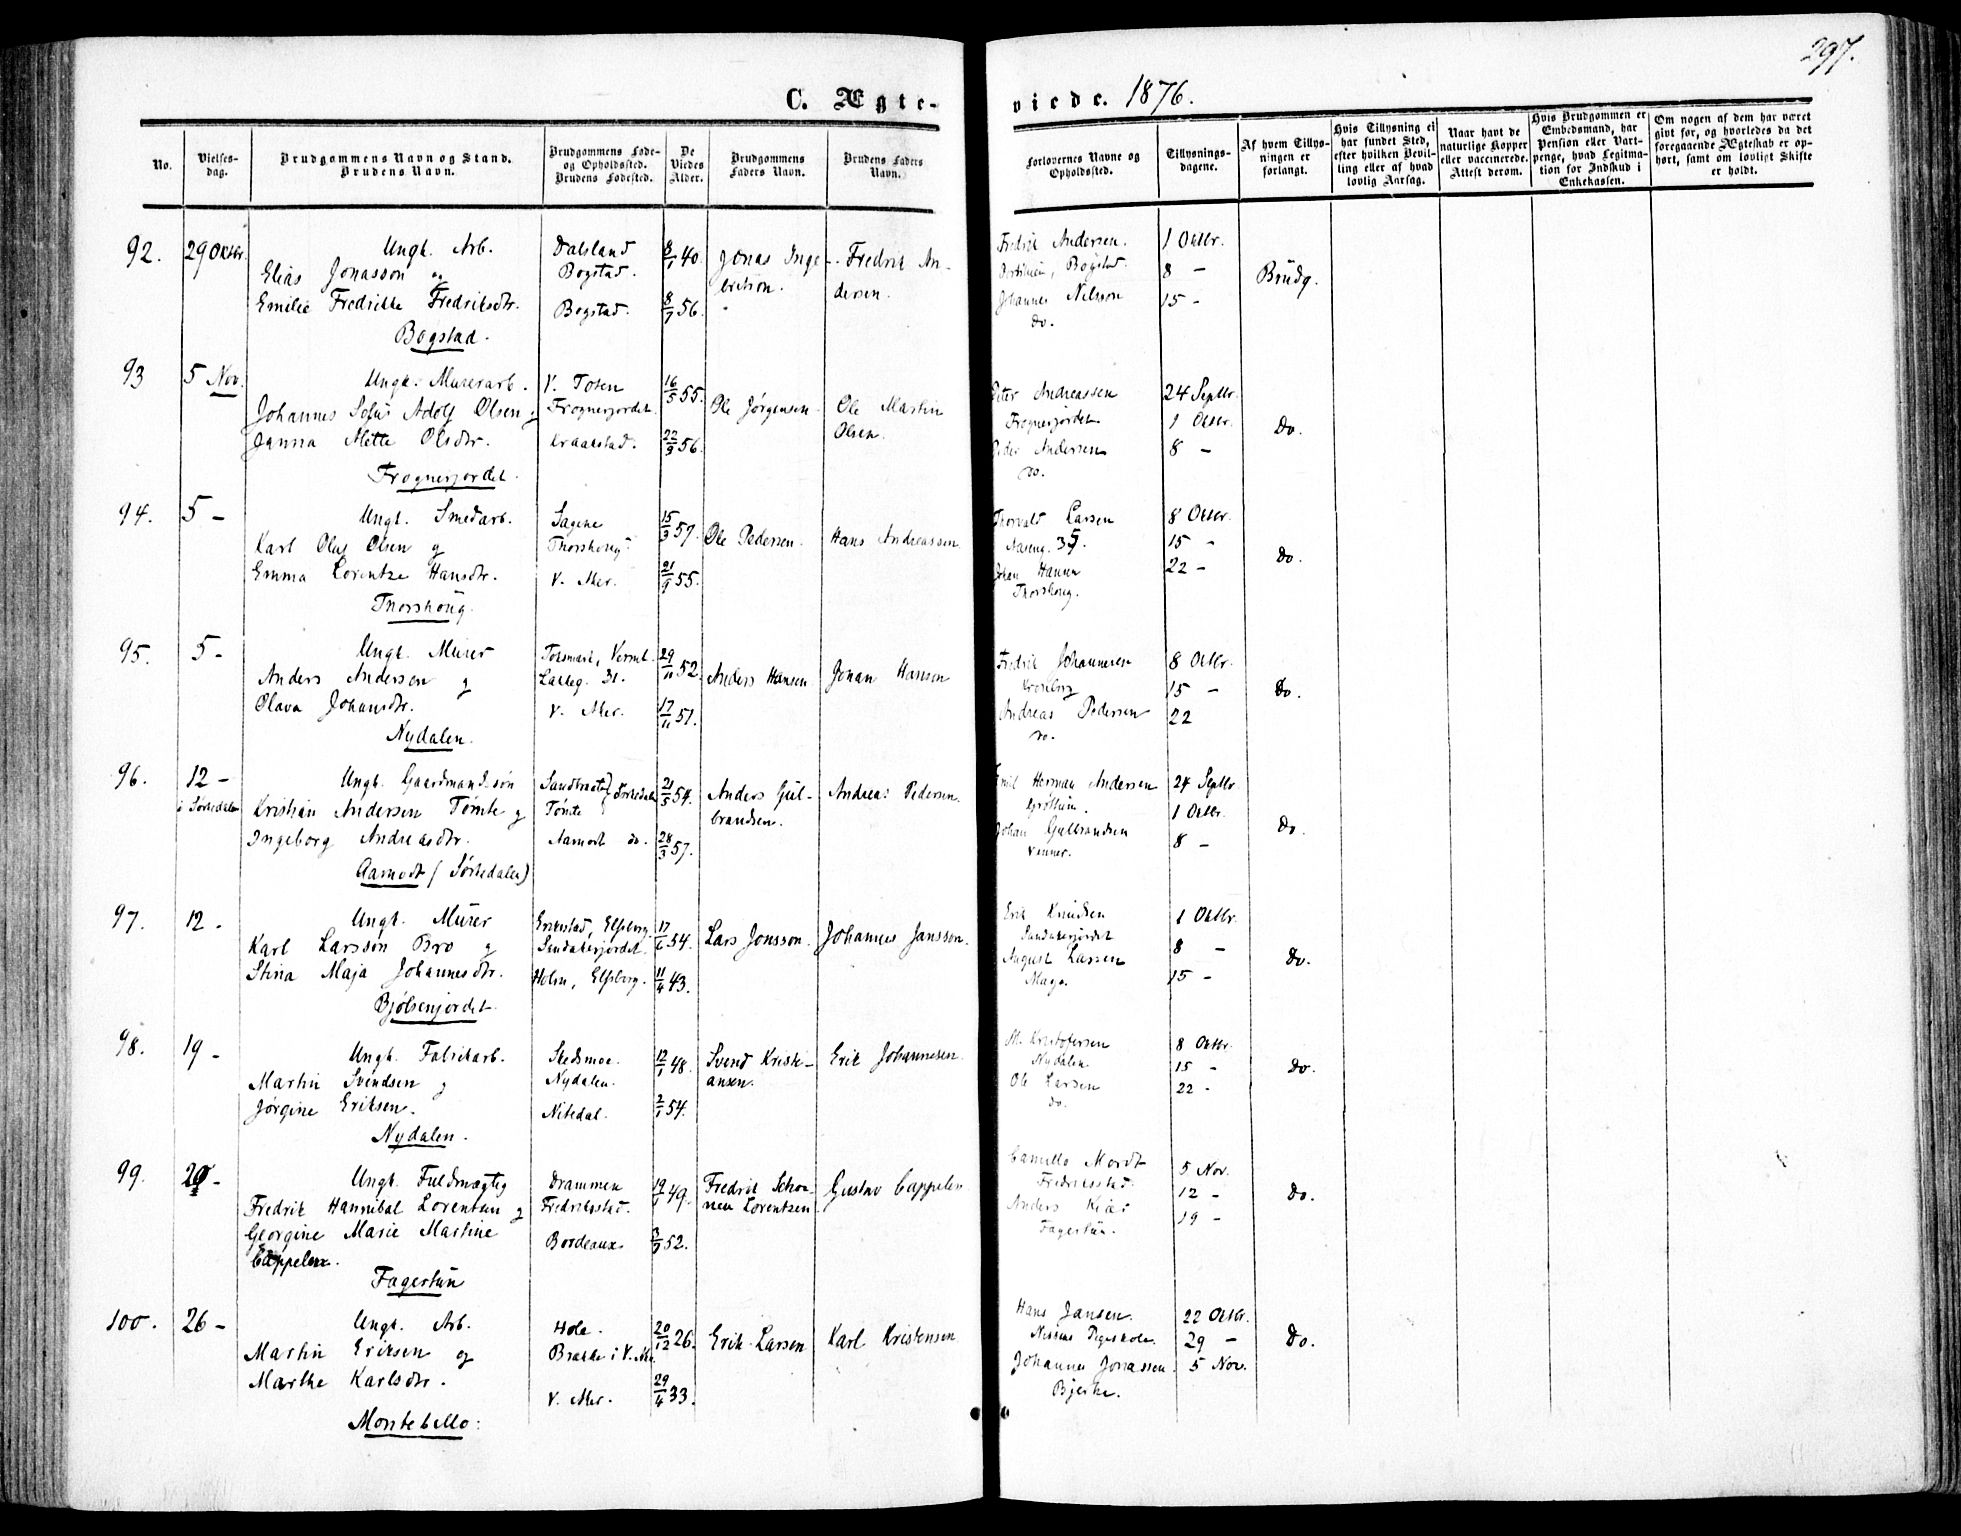 297.
C. Ægte-
viede. 1876.
No.
Vielses-
dag.
Brudgommens Navn og Stand.
Brudens Navn.
Brudgommens Føde-
og Opholdssted.
Brudens Fødested.
De
Viedes
Alder.
Brudgommens
Faders Navn.
Brudens Faders
Navn.
Forlovernes Navne og
Opholdssted.
Tillysnings-
dagene.
Af hvem Tillys-
ningen er
forlangt.
Hvis Tillysning ei
har fundet Sted,
efter hvilken Bevil-
ling eller af hvad
lovlig Aarsag.
Naar havt de
naturlige Kopper
eller vaccinerede.
Attest derom.
Hvis Brudgommen er
Embedsmand, har
Pension eller Vart-
penge, hvad Legitima-
tion for Indskud i
Enkekassen.
Om nogen af dem har været
givt før, og hvorledes da det
foregaaende Ægteskab er op-
hørt, samt om lovligt Skifte
er holdt.
92.
29 Oktbr.
Ungk. Arb.
Elias Jonasson og
Emilie Fredrikke Fredriksdtr.
Bogstad.
Dalsland
Bogstad.
Bogstad.
8/1 40.
8/7 56.
Jonas Inge-
britson.
Fredrik An-
dersen.
Fredrik Andersen.
Bogstad.
Johannes Nilsson
do.
1 Oktbr.
8 -
15 -
Brudg.
93
5 Nov.
Ungk. Murerarb.
Johannes Sofus Adolf Olsen og
Janna Mette Olsdtr.
Frognerjordet.
V. Toten
Frognerjordet.
Kraakstad.
16/5 55.
22/3 56.
Ole Jørgensen.
Ole Martin
Olsen.
Peter Andreassen
Frognerjordet
Peder Andersen
do.
24 Septbr.
1 Oktbr.
8 -
Do.
94.
5 -
Ungk. Smedarb.
Karl Olaf Olsen og
Emma Lorentze Hansdtr.
Thorshoug.
Sagene
Thorshoug.
V. Aker.
15/3 57.
21/9 55.
Ole Pedersen.
Hans Andreassen
Thorvald Larsen
35.
Johan Hansen
Thorshoug.
8 Oktbr.
15 -
22 -
Do.
95.
5 -
Ungk. Murer
Anders Anderson og
Olava Johansdtr.
Nydalen.
Fossmark, Verml.
Lakkeg. 31.
V. Aker.
29/11 52.
17/11 51.
Anders Hansen
Johan Hanson
Fredrik Johannesen
Kronborg
Andreas Pedersen
do.
8 Oktbr.
15 -
22
Do.
96.
12 -
i Sørkedalen
Ungk. Gaardmandssøn
Kristian Andersen Tømte og
Ingeborg Andreasdtr.
Aamodt (Sørkedalen)
Sandbraaten
Tømte
Sørkedalen
Aamodt do.
21/5 54.
28/3 57.
Anders Gul-
brandsen.
Andreas Pedersen.
Emil Herman Andersen
Grøttum.
Johan Gulbrandsen
Venner.
24 Septbr
1 Oktbr.
8 -
Do.
97.
12 -
Ungk. Murer
Karl Larsson Bro og
Stina Maja Johannesdtr.
Bjølsenjordet.
Erikstad, Elfsborg.
Sandakerjordet.
Holm, Elfsborg.
17/6 54.
11/4 43.
Lars Jonsson.
Johannes Jansson.
Erik Knudsen
Sandakerjordet
August Larsen
Maga.
1 Oktbr.
8 -
15 -
Do.
98.
19 -
Ungk. Fabrikarb.
Martin Svendsen og
Jørgine Eriksen.
Nydalen.
Skedsmoe.
Nydalen.
Nitedal.
12/1 48.
2/1 54.
Svend Kristi-
ansen.
Erik Johannesen.
M. Kristofersen
Nydalen
Ole Larsen
do.
8 Oktbr.
15 -
22 -
Do.
99.
20 -
Ungk. Fuldmægtig
Fredrik Hannibal Lorentzen og
Georgine Marie Martine
Cappelen.
Fagertun
Drammen
Fredriksstad.
Bordeaux.
19/1 49.
3/9 52.
Fredrik Scho-
nen Lorentzen
Gustav Cappelen.
Camillo Mordt
Fredriksstad.
Anders Kiær
Fagertun.
5 Nov.
12 -
19 -
Do.
100.
26 -
Ungk. Arb.
Martin Eriksen og
Marthe Karlsdtr.
Montebello:
Hole.
Brække i V. Aker
V. Aker.
20/12 26.
29/4 33.
Erik Larsen
Karl Kristensen
Hans Jansen.
Nissens Pigeskole.
Johannes Jonassen.
Bjerke.
22 Oktbr.
29 -
5 Nov.
Do.